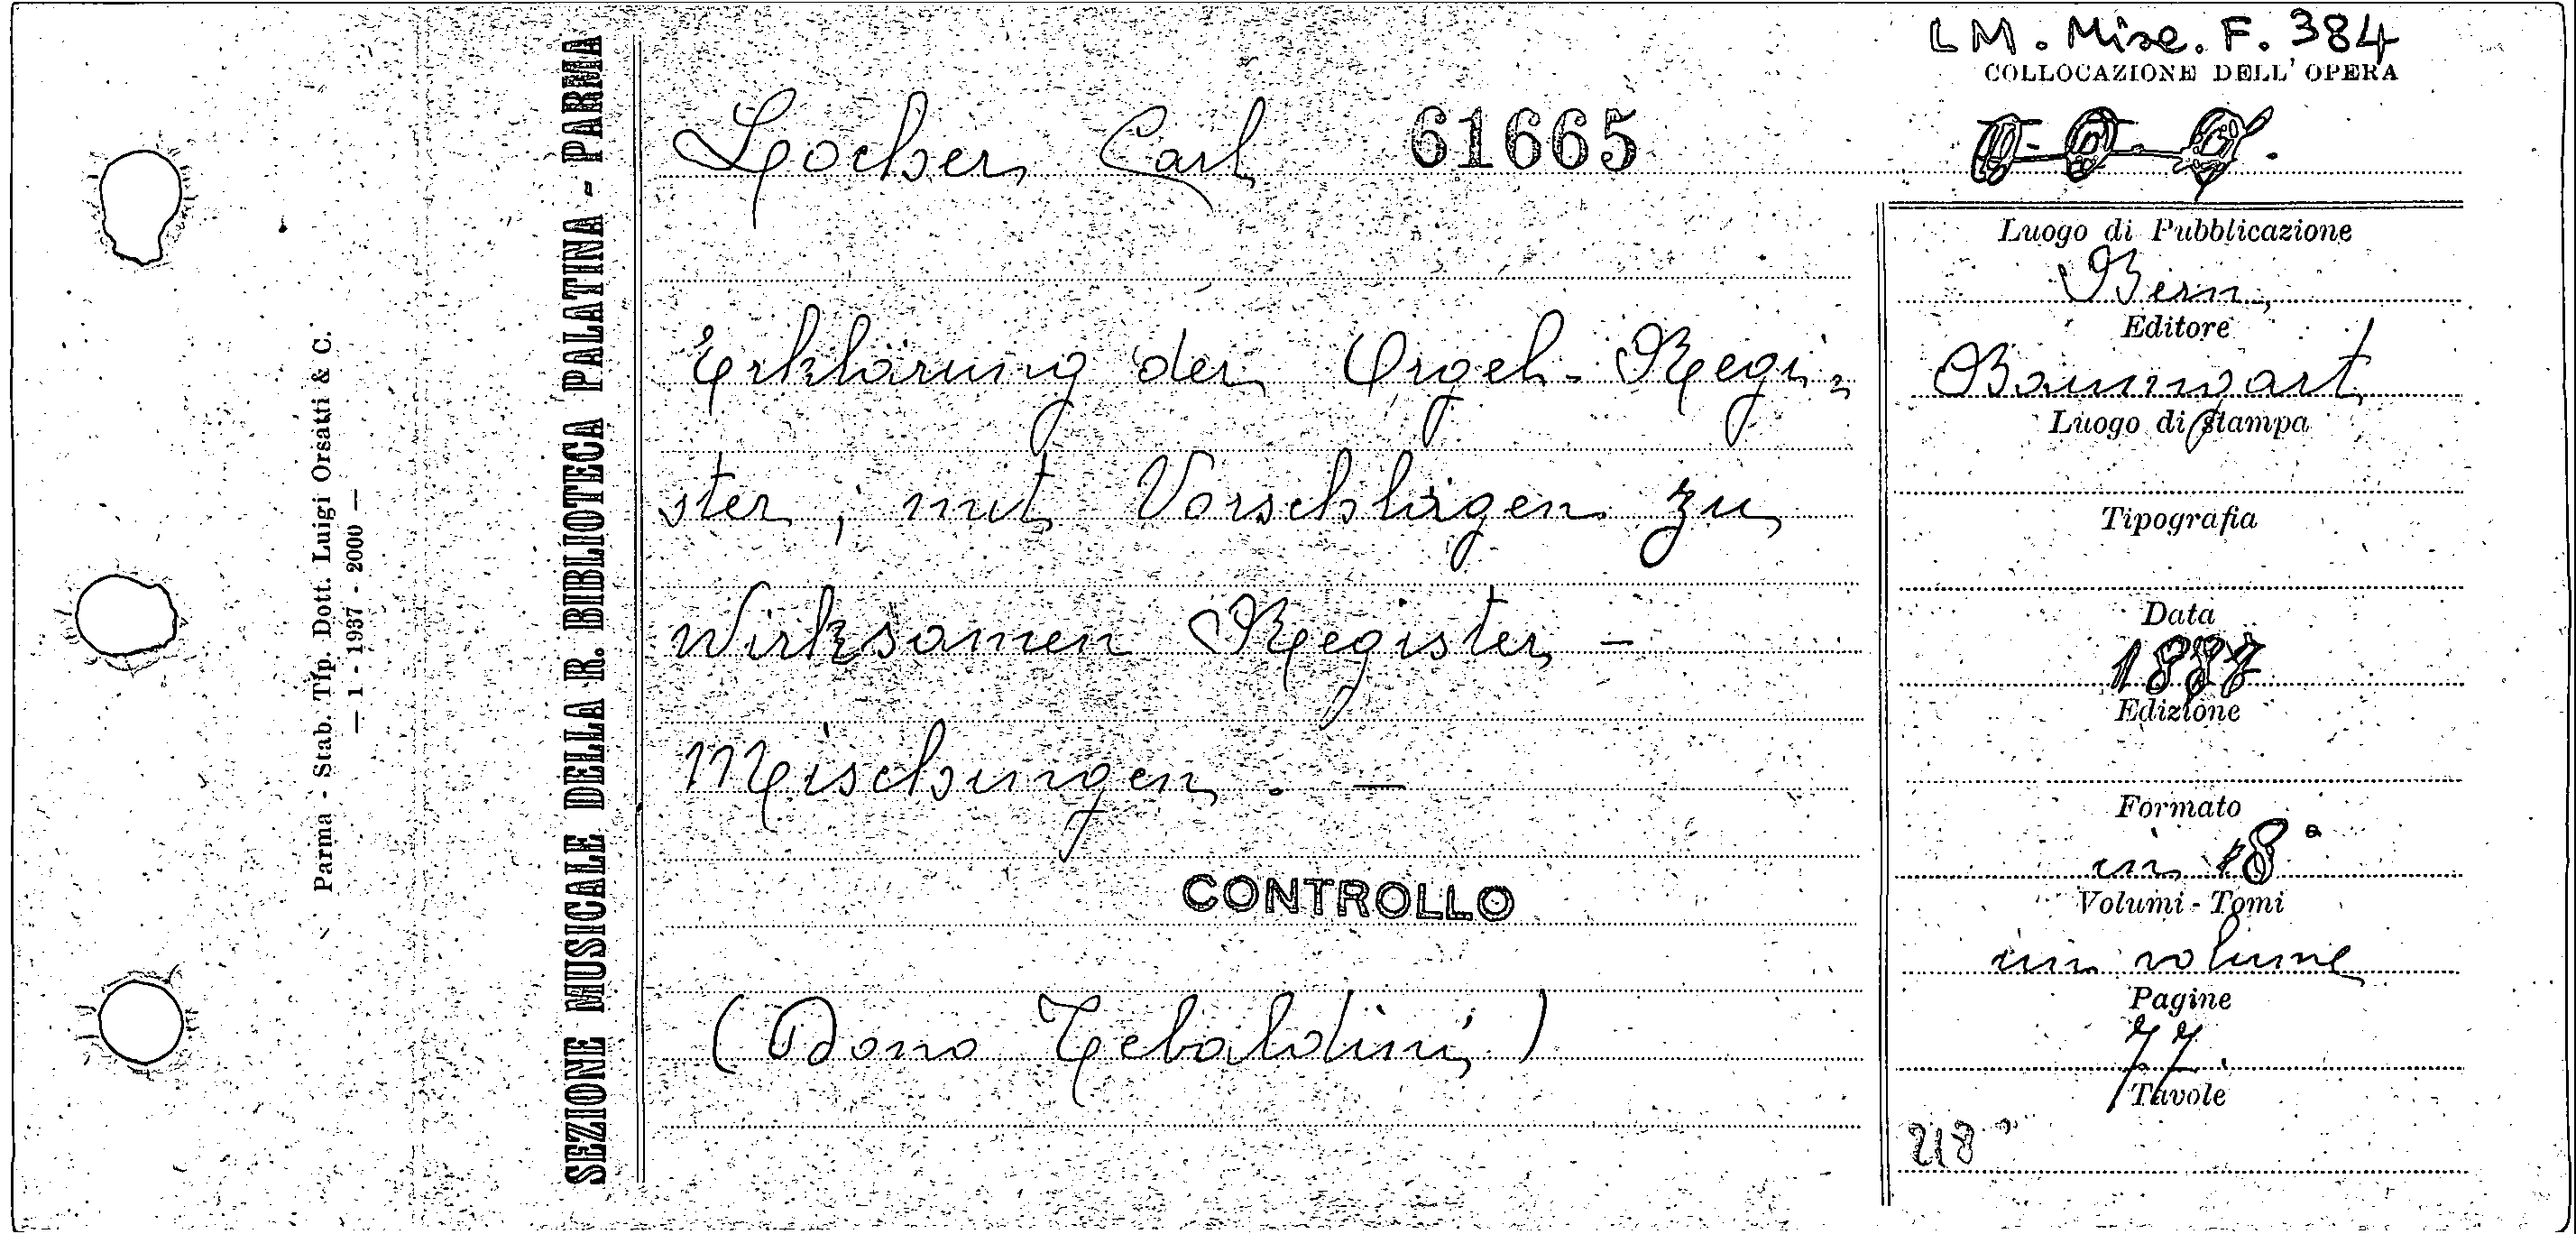 LM. Misc. F. 384
COLLOCAZIONE DELL' OPERA
Locher Carl 61665
Erklärung der Orgel-Regi-
ster, mit Vorschlägen zu
wirksamen Register -
Mischungen. —
CONTROLLO
(Dono Tebaldini)
Luogo di Pubblicazione
Bern,
Editore
Baumgart
Luogo di stampa
Tipografia
Data
1887
Edizione
Formato
in 18°
Volumi - Tomi
un volume
Pagine
77.
Tavole
SEZIONE MUSICALE DELLA R. BIBLIOTECA PALATINA - PARMA
Parma - Stab. Tip. Dott. Luigi Orsatti & C.
— 1 - 1937 - 2000 —